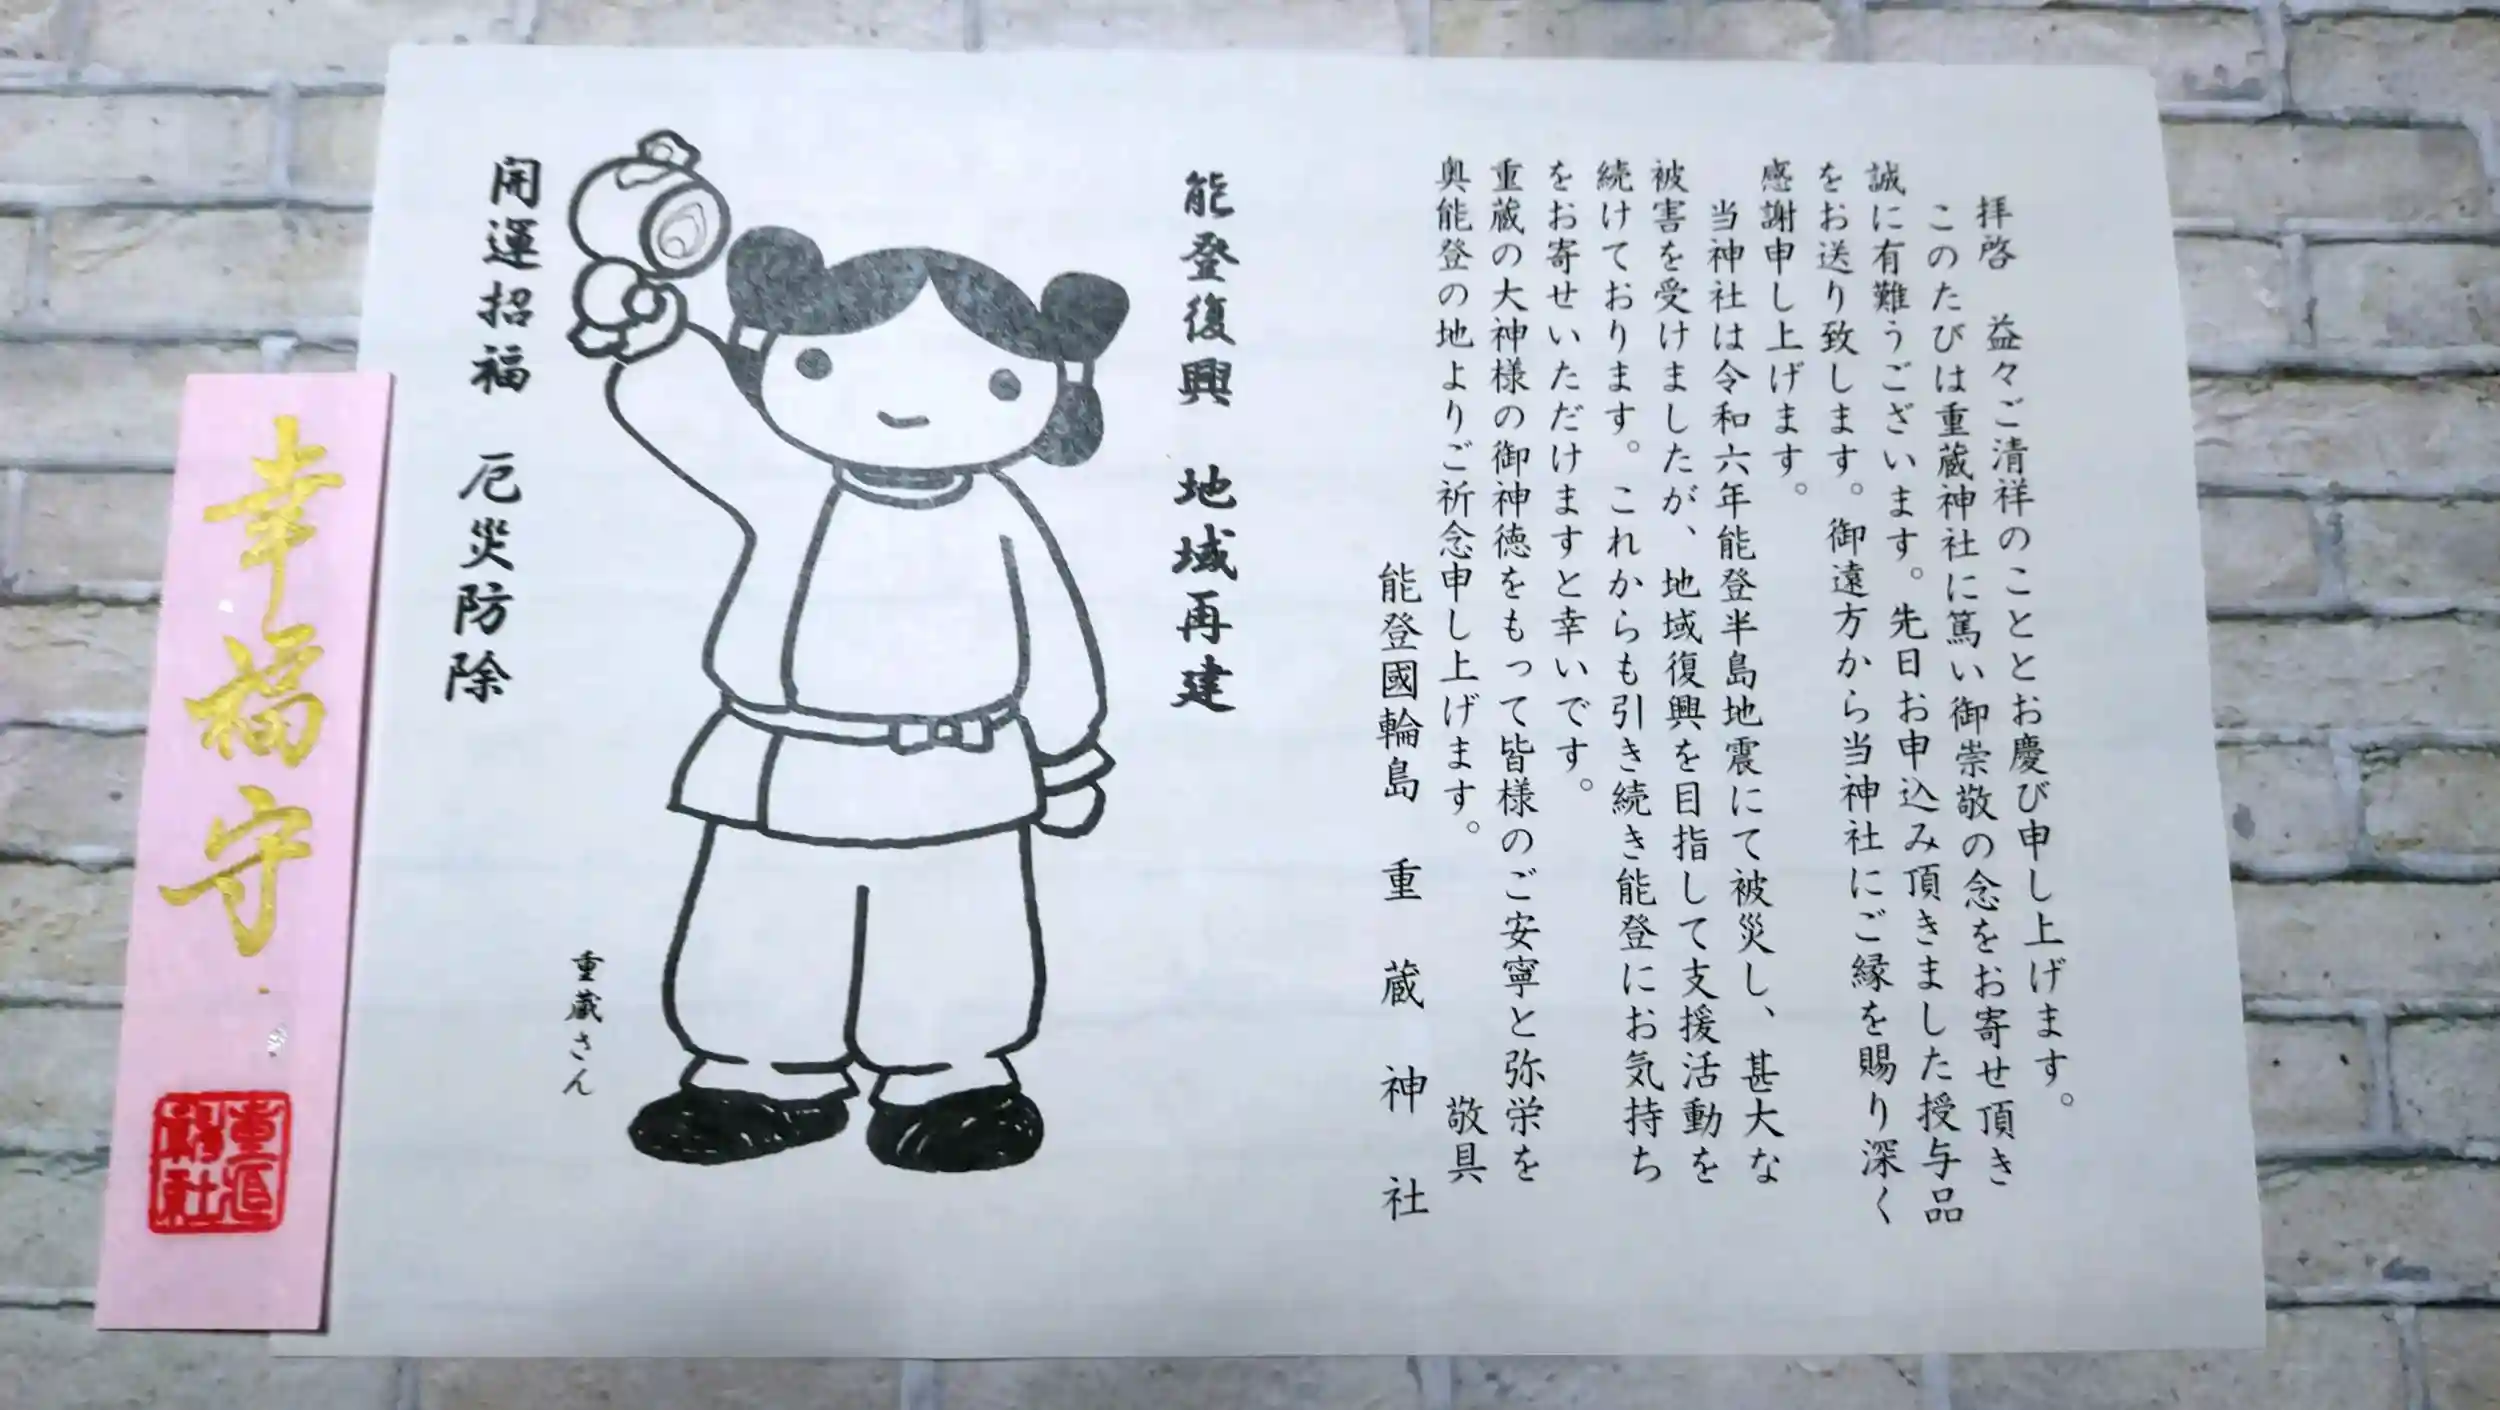 拝啓　益々ご清祥のこととお慶び申し上げます。
このたびは重蔵神社に篤い御崇敬の念をお寄せ頂き
誠に有難うございます。先日お申込み頂きました授与品
をお送り致します。御遠方から当神社にご縁を賜り深く
感謝申し上げます。
当神社は令和六年能登半島地震にて被災し、甚大な
被害を受けましたが、地域復興を目指して支援活動を
続けております。これからも引き続き能登にお気持ち
をお寄せいただけますと幸いです。
重蔵の大神様の御神徳をもって皆様のご安寧と弥栄を
奥能登の地よりご祈念申し上げます。
敬具
能登國輪島　重蔵神社
能登復興　地域再建
開運招福　厄災防除
重蔵さん
幸福守
重蔵
神社